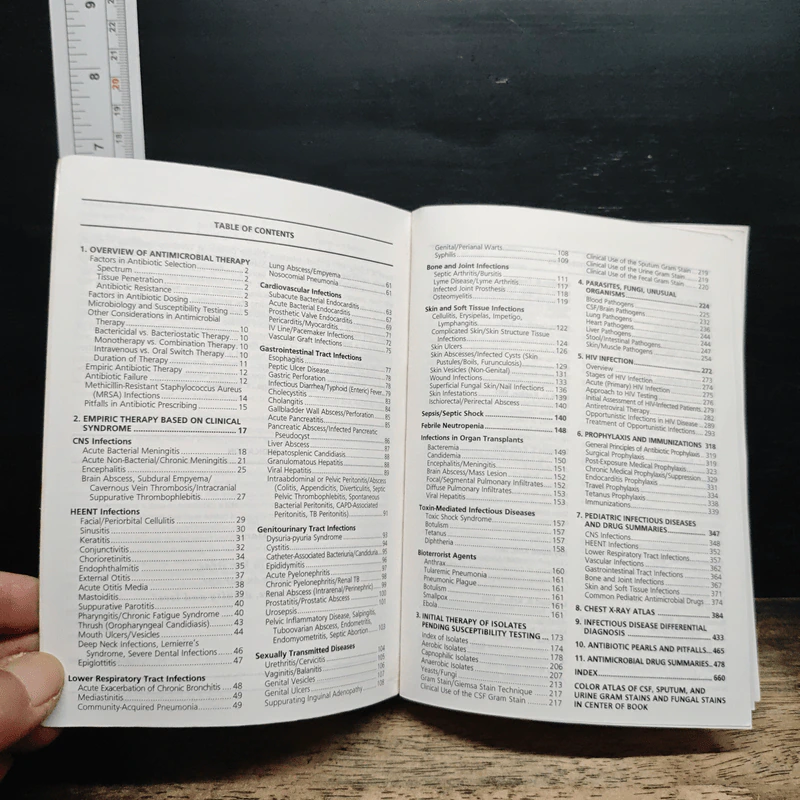 9
8
7
TABLE OF CONTENTS
1. OVERVIEW OF ANTIMICROBIAL THERAPY
Factors in Antibiotic Selection 2
Spectrum 2
Tissue Penetration 2
Antibiotic Resistance 2
Factors in Antibiotic Dosing 2
Microbiology and Susceptibility Testing 5
Other Considerations in Antimicrobial
Therapy 10
Bactericidal vs. Bacteriostatic Therapy 10
Monotherapy vs. Combination Therapy 10
Intravenous vs. Oral Switch Therapy 10
Duration of Therapy 11
Empiric Antibiotic Therapy 12
Antibiotic Failure 12
Methicillin-Resistant Staphylococcus Aureus
(MRSA) Infections 14
Pitfalls in Antibiotic Prescribing 15
2. EMPIRIC THERAPY BASED ON CLINICAL
SYNDROME 17
CNS Infections
Acute Bacterial Meningitis 18
Acute Non-Bacterial/Chronic Meningitis 21
Encephalitis 25
Brain Abscess, Subdural Empyema/
Cavernous Vein Thrombosis/Intracranial
Suppurative Thrombophlebitis 27
HEENT Infections
Facial/Periorbital Cellulitis 29
Sinusitis 30
Keratitis 31
Conjunctivitis 32
Chorioretinitis 34
Endophthalmitis 35
External Otitis 37
Acute Otitis Media 38
Mastoiditis 39
Suppurative Parotitis 40
Pharyngitis/Chronic Fatigue Syndrome 40
Thrush (Oropharyngeal Candidiasis) 43
Mouth Ulcers/Vesicles 44
Deep Neck Infections, Lemierre's
Syndrome, Severe Dental Infections 46
Epiglottitis 47
Lower Respiratory Tract Infections
Acute Exacerbation of Chronic Bronchitis 48
Mediastinitis 49
Community-Acquired Pneumonia 49
Lung Abscess/Empyema 61
Nosocomial Pneumonia 61
Cardiovascular Infections
Subacute Bacterial Endocarditis 63
Acute Bacterial Endocarditis 67
Prosthetic Valve Endocarditis 69
Pericarditis/Myocarditis 71
IV Line/Pacemaker Infections 72
Vascular Graft Infections 75
Gastrointestinal Tract Infections
Esophagitis 77
Peptic Ulcer Disease 78
Gastric Perforation 78
Infectious Diarrhea/Typhoid (Enteric) Fever 79
Cholecystitis 83
Cholangitis 84
Gallbladder Wall Abscess/Perforation 85
Acute Pancreatitis 85
Pancreatic Abscess/Infected Pancreatic
Pseudocyst 86
Liver Abscess 87
Hepatosplenic Candidiasis 88
Granulomatous Hepatitis 88
Viral Hepatitis 89
Intraabdominal or Pelvic Peritonitis/Abscess
(Colitis, Appendicitis, Diverticulitis, Septic
Pelvic Thrombophlebitis, Spontaneous
Bacterial Peritonitis, CAPD-Associated
Peritonitis, TB Peritonitis) 91
Genitourinary Tract Infections
Dysuria-pyuria Syndrome 93
Cystitis 94
Catheter-Associated Bacteriuria/Candiduria 95
Epididymitis 96
Acute Pyelonephritis 97
Chronic Pyelonephritis/Renal TB 98
Renal Abscess (Intrarenal/Perinephric) 99
Prostatitis/Prostatic Abscess 100
Urosepsis 101
Pelvic Inflammatory Disease, Salpingitis,
Tuboovarian Abscess, Endometritis,
Endomyometritis, Septic Abortion 103
Sexually Transmitted Diseases 104
Urethritis/Cervicitis 105
Vaginitis/Balanitis 106
Genital Vesicles 107
Genital Ulcers 108
Suppurating Inguinal Adenopathy
Genital/Perianal Warts 108
Syphilis 109
Bone and Joint Infections
Septic Arthritis/Bursitis 111
Lyme Disease/Lyme Arthritis 117
Infected Joint Prosthesis 118
Osteomyelitis 119
Skin and Soft Tissue Infections
Cellulitis, Erysipelas, Impetigo,
Lymphangitis 122
Complicated Skin/Skin Structure Tissue
Infections 124
Skin Ulcers 126
Skin Abscesses/Infected Cysts (Skin
Pustules/Boils, Furunculosis) 129
Skin Vesicles (Non-Genital) 131
Wound Infections 133
Superficial Fungal Skin/Nail Infections 136
Skin Infestations 139
Ischiorectal/Perirectal Abscess 140
Sepsis/Septic Shock 140
Febrile Neutropenia 148
Infections in Organ Transplants
Bacteremia 149
Candidemia 150
Encephalitis/Meningitis 151
Brain Abscess/Mass Lesion 152
Focal/Segmental Pulmonary Infiltrates 152
Diffuse Pulmonary Infiltrates 153
Viral Hepatitis 153
Toxin-Mediated Infectious Diseases
Toxic Shock Syndrome 157
Botulism 157
Tetanus 157
Diphtheria 158
Bioterrorist Agents
Anthrax 160
Tularemic Pneumonia 161
Pneumonic Plague 161
Botulism 161
Smallpox 161
Ebola 161
3. INITIAL THERAPY OF ISOLATES
PENDING SUSCEPTIBILITY TESTING 173
Index of Isolates 174
Aerobic Isolates 178
Capnophilic Isolates 206
Anaerobic Isolates 207
Yeasts/Fungi 213
Gram Stain/Giemsa Stain Technique 217
Clinical Use of the CSF Gram Stain 217
Clinical Use of the Sputum Gram Stain 219
Clinical Use of the Urine Gram Stain 219
Clinical Use of the Fecal Gram Stain 220
4. PARASITES, FUNGI, UNUSUAL
ORGANISMS 224
Blood Pathogens 225
CSF/Brain Pathogens 232
Lung Pathogens 236
Heart Pathogens 244
Liver Pathogens 244
Stool/Intestinal Pathogens 247
Skin/Muscle Pathogens 254
5. HIV INFECTION 272
Overview 273
Stages of HIV Infection 274
Acute (Primary) HIV Infection 275
Approach to HIV Testing 276
Initial Assessment of HIV-Infected Patients 279
Antiretroviral Therapy 282
Opportunistic Infections in HIV Disease 289
Treatment of Opportunistic Infections 293
6. PROPHYLAXIS AND IMMUNIZATIONS 318
General Principles of Antibiotic Prophylaxis 319
Surgical Prophylaxis 319
Post-Exposure Medical Prophylaxis 323
Chronic Medical Prophylaxis/Suppression 329
Endocarditis Prophylaxis 331
Travel Prophylaxis 334
Tetanus Prophylaxis 338
Immunizations 339
7. PEDIATRIC INFECTIOUS DISEASES
AND DRUG SUMMARIES 347
CNS Infections 348
HEENT Infections 352
Lower Respiratory Tract Infections 357
Vascular Infections
Gastrointestinal Tract Infections
Bone and Joint Infections
Skin and Soft Tissue Infections 371
Common Pediatric Antimicrobial Drugs 374
8. CHEST X-RAY ATLAS 384
9. INFECTIOUS DISEASE DIFFERENTIAL
DIAGNOSIS 433
10. ANTIBIOTIC PEARLS AND PITFALLS 465
11. ANTIMICROBIAL DRUG SUMMARIES 478
INDEX 660
COLOR ATLAS OF CSF, SPUTUM, AND
URINE GRAM STAINS AND FUNGAL STAINS
IN CENTER OF BOOK